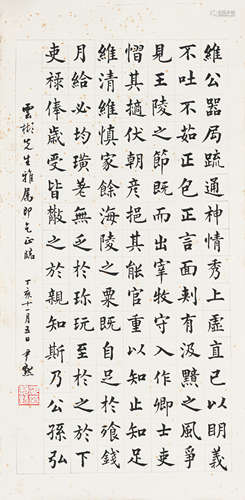 維公器局疏通神情秀上虛直已以明義
不吐不茹正色正言面刺有汲黯之風爭
見王陵之節既而出宰牧守入作卿士吏
慴其樝伏朝彦挹其能官重以知止知足
維清維慎家餘海陵之粟既自足於飡錢
月給必均璜耇無之於珎玩至於之於下
吏祿俸歲受皆散之於親知斯乃公孫弘
雲樹先生雅屬即乞正臨
丁亥十一月五日尹默